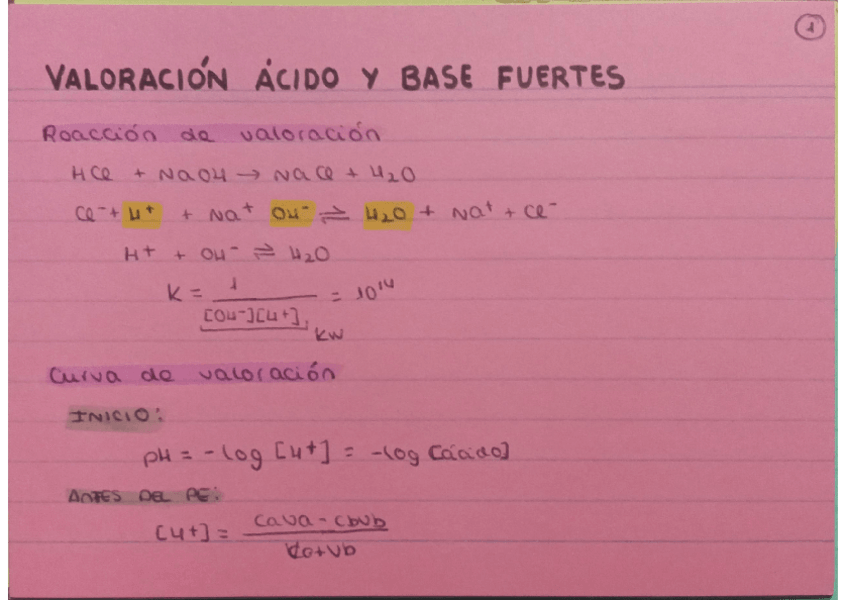 1
VALORACIÓN ÁCIDO Y BASE FUERTES
Reacción de valoración
HCl + NaOH → NaCl + H2O
Cl⁻ + H⁺ + Na⁺ OH⁻ ⇌ H2O + Na⁺ + Cl⁻
H⁺ + OH⁻ ⇌ H2O
K = 1 / [OH⁻][H⁺] = 10¹⁴
Kw
Curva de valoración
INICIO:
pH = -log [H⁺] = -log [ácido]
ANTES DEL PE:
[H⁺] = CaVa - CbVb / Va+Vb